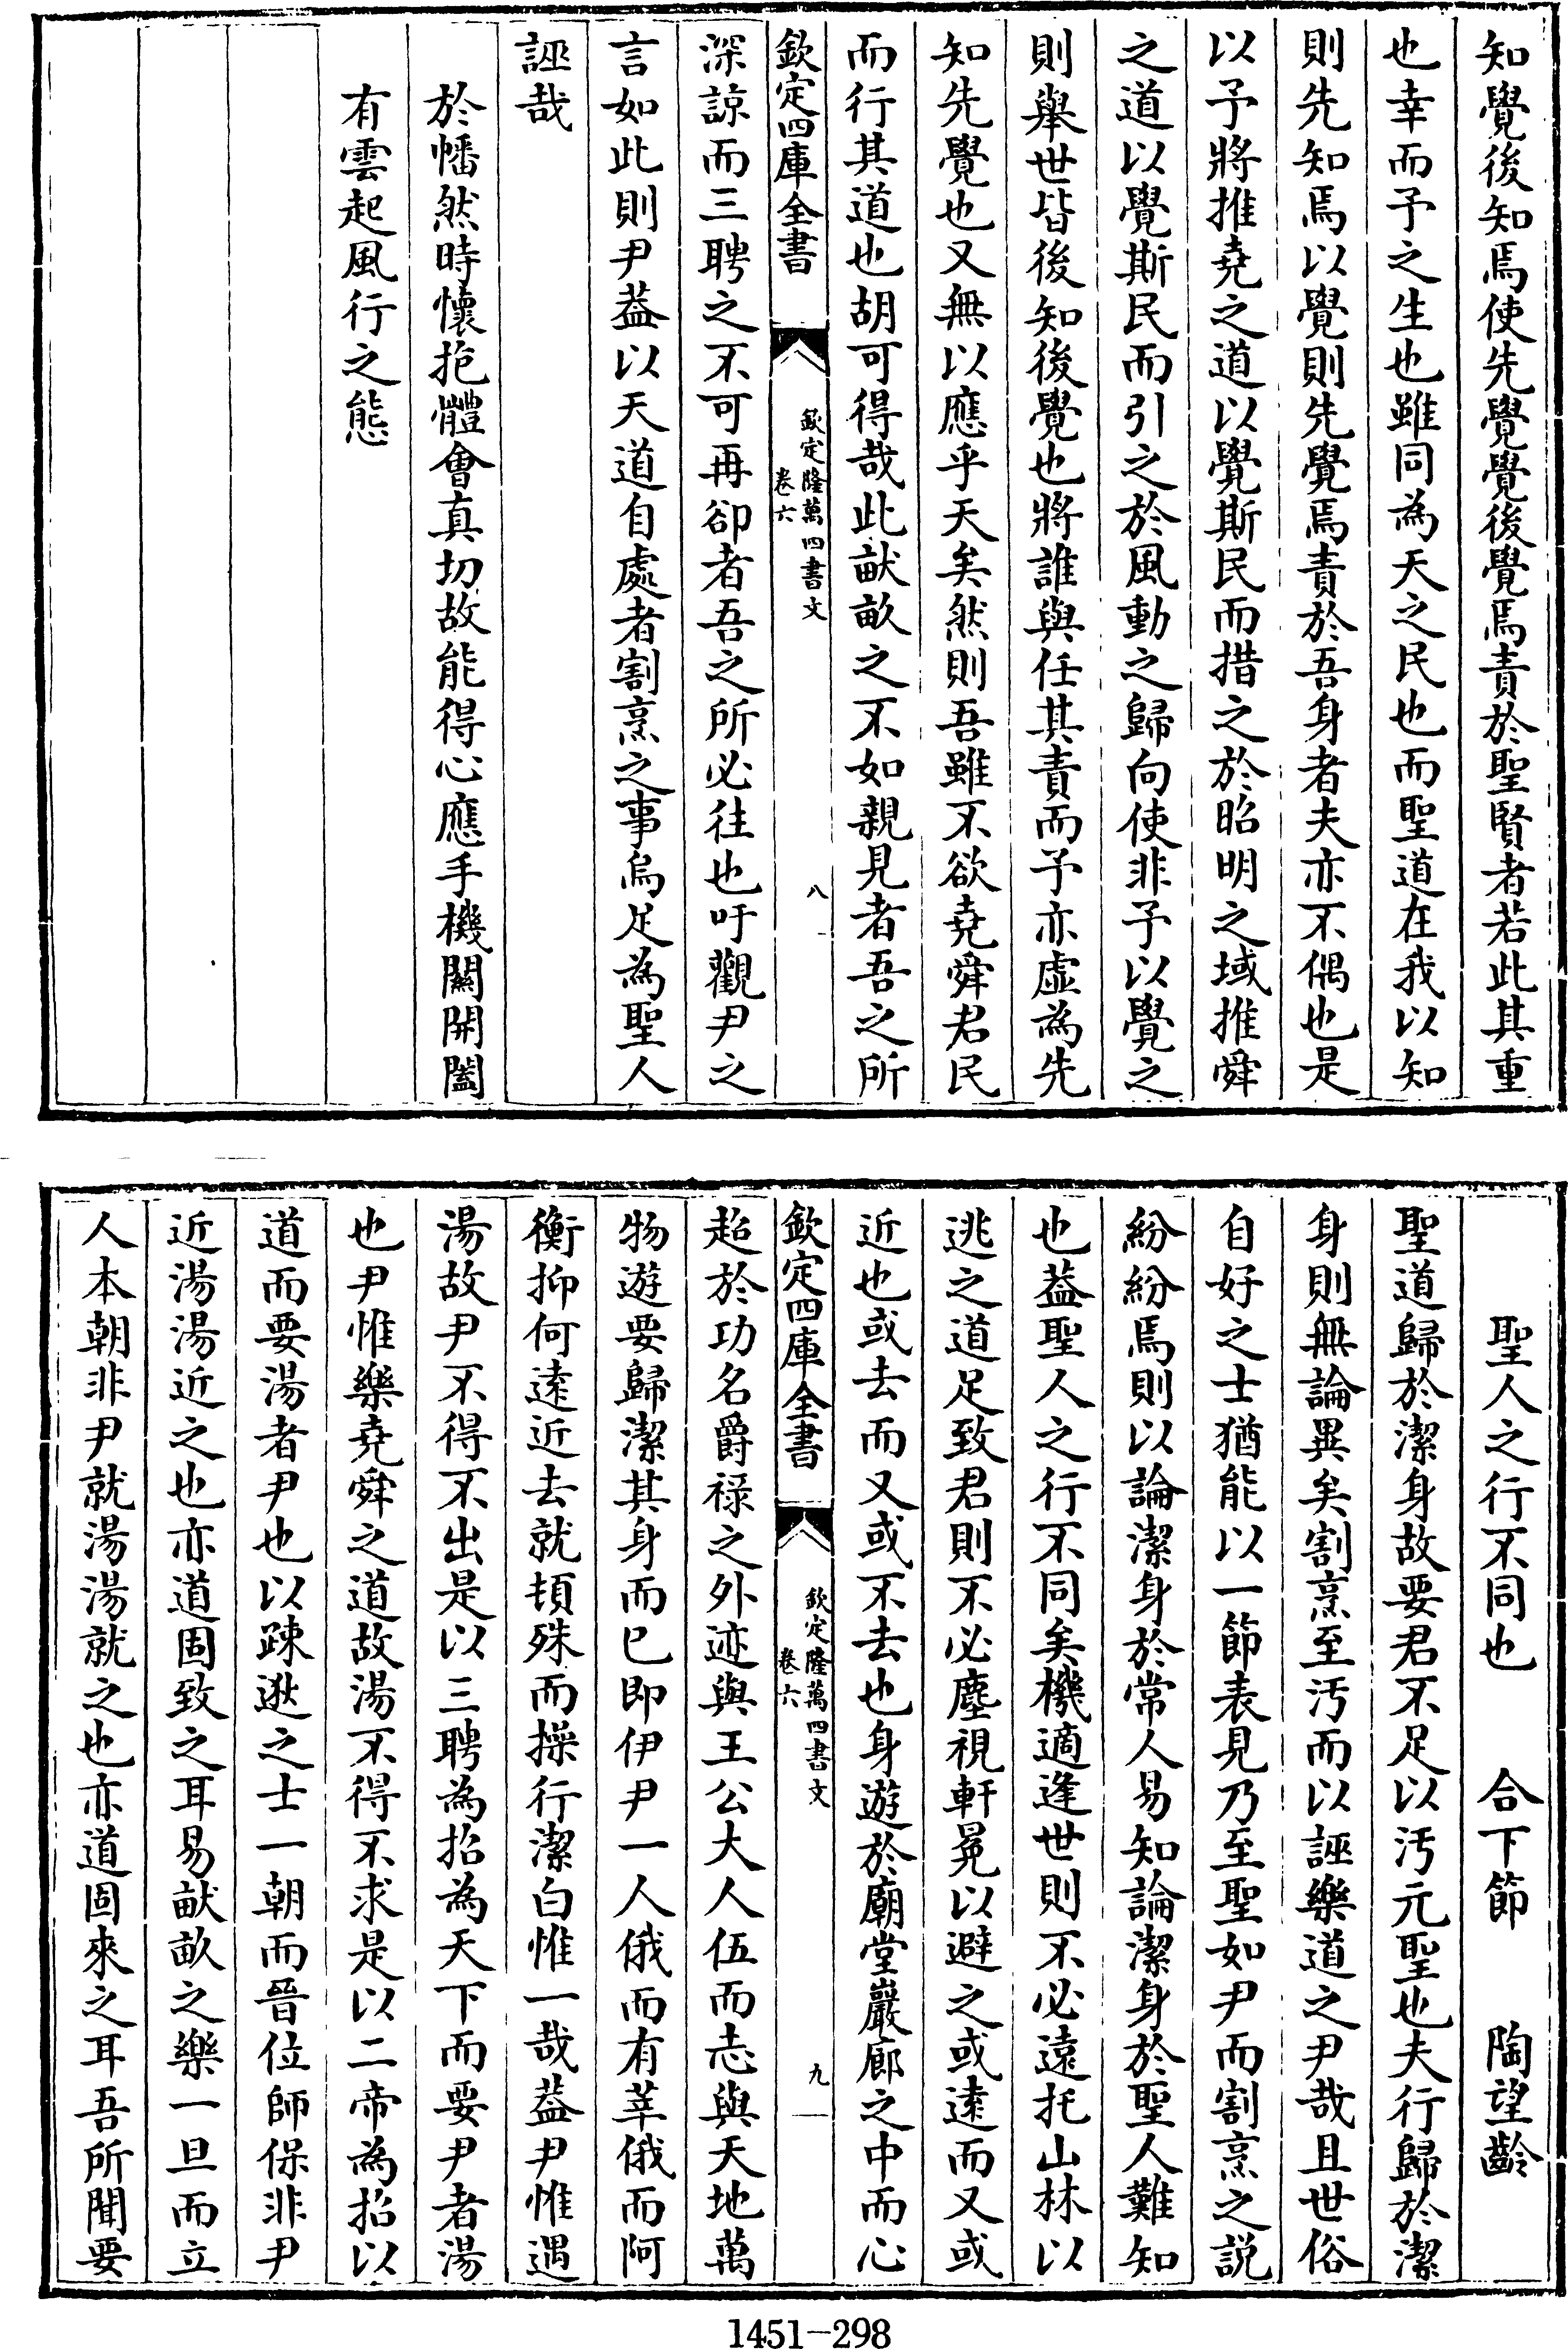 知覺後知焉使先覺覺後覺焉責於聖賢者若此其重
也幸而予之生也雖同為天之民也而聖道在我以知
則先知焉以覺則先覺焉責於吾身者夫亦不偶也是
以予將推堯之道以覺斯民而措之於昭明之域推舜
之道以覺斯民而引之於風動之歸向使非予以覺之
則舉世皆後知後覺也將誰與任其責而予亦虛為先
知先覺也又無以應乎天矣然則吾雖不欲堯舜君民
而行其道也胡可得哉此畎畝之不如親見者吾之所
欽定四庫全書
欽定隆萬四書文
卷六
八
深諒而三聘之不可再卻者吾之所必往也吁觀尹之
言如此則尹蓋以天道自處者割烹之事烏足為聖人
誣哉
於幡然時懷抱體會真切故能得心應手機關開闔
有雲起風行之態
聖人之行不同也 合下節 陶望齡
聖道歸於潔身故要君不足以汚元聖也夫行歸於潔
身則無論異矣割烹至汚而以誣樂道之尹哉且世俗
自好之士猶能以一節表見乃至聖如尹而割烹之説
紛紛焉則以論潔身於常人易知論潔身於聖人難知
也蓋聖人之行不同矣機適逢世則不必遠托山林以
逃之道足致君則不必塵視軒冕以避之或遠而又或
近也或去而又或不去也身遊於廟堂巖廊之中而心
欽定四庫全書
欽定隆萬四書文
卷六
九
超於功名爵祿之外迹與王公大人伍而志與天地萬
物遊要歸潔其身而已即伊尹一人俄而有莘俄而阿
衡抑何遠近去就頓殊而操行潔白惟一哉蓋尹惟遇
湯故尹不得不出是以三聘為招為天下而要尹者湯
也尹惟樂堯舜之道故湯不得不求是以二帝為招以
道而要湯者尹也以疎逖之士一朝而晉位師保非尹
近湯湯近之也亦道固致之耳易畎畝之樂一旦而立
人本朝非尹就湯湯就之也亦道固來之耳吾所聞要
1451-298